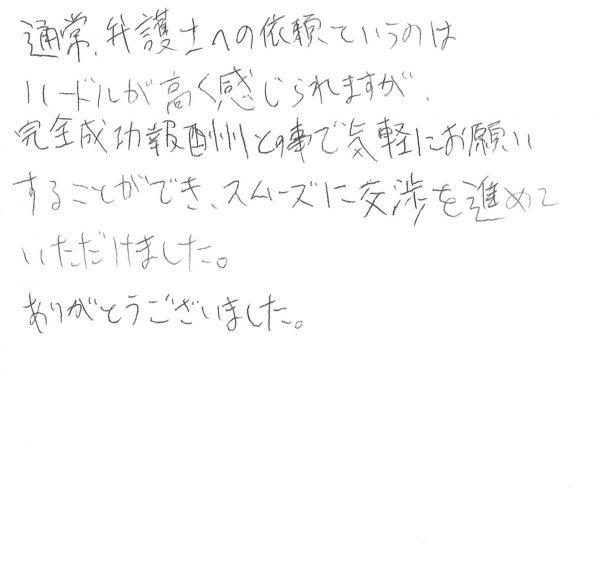 通常、弁護士への依頼ていうのは
ハードルが高く感じられますが、
完全成功報酬との事で気軽にお願い
することができ、スムーズに交渉を進めて
いただけました。
ありがとうございました。